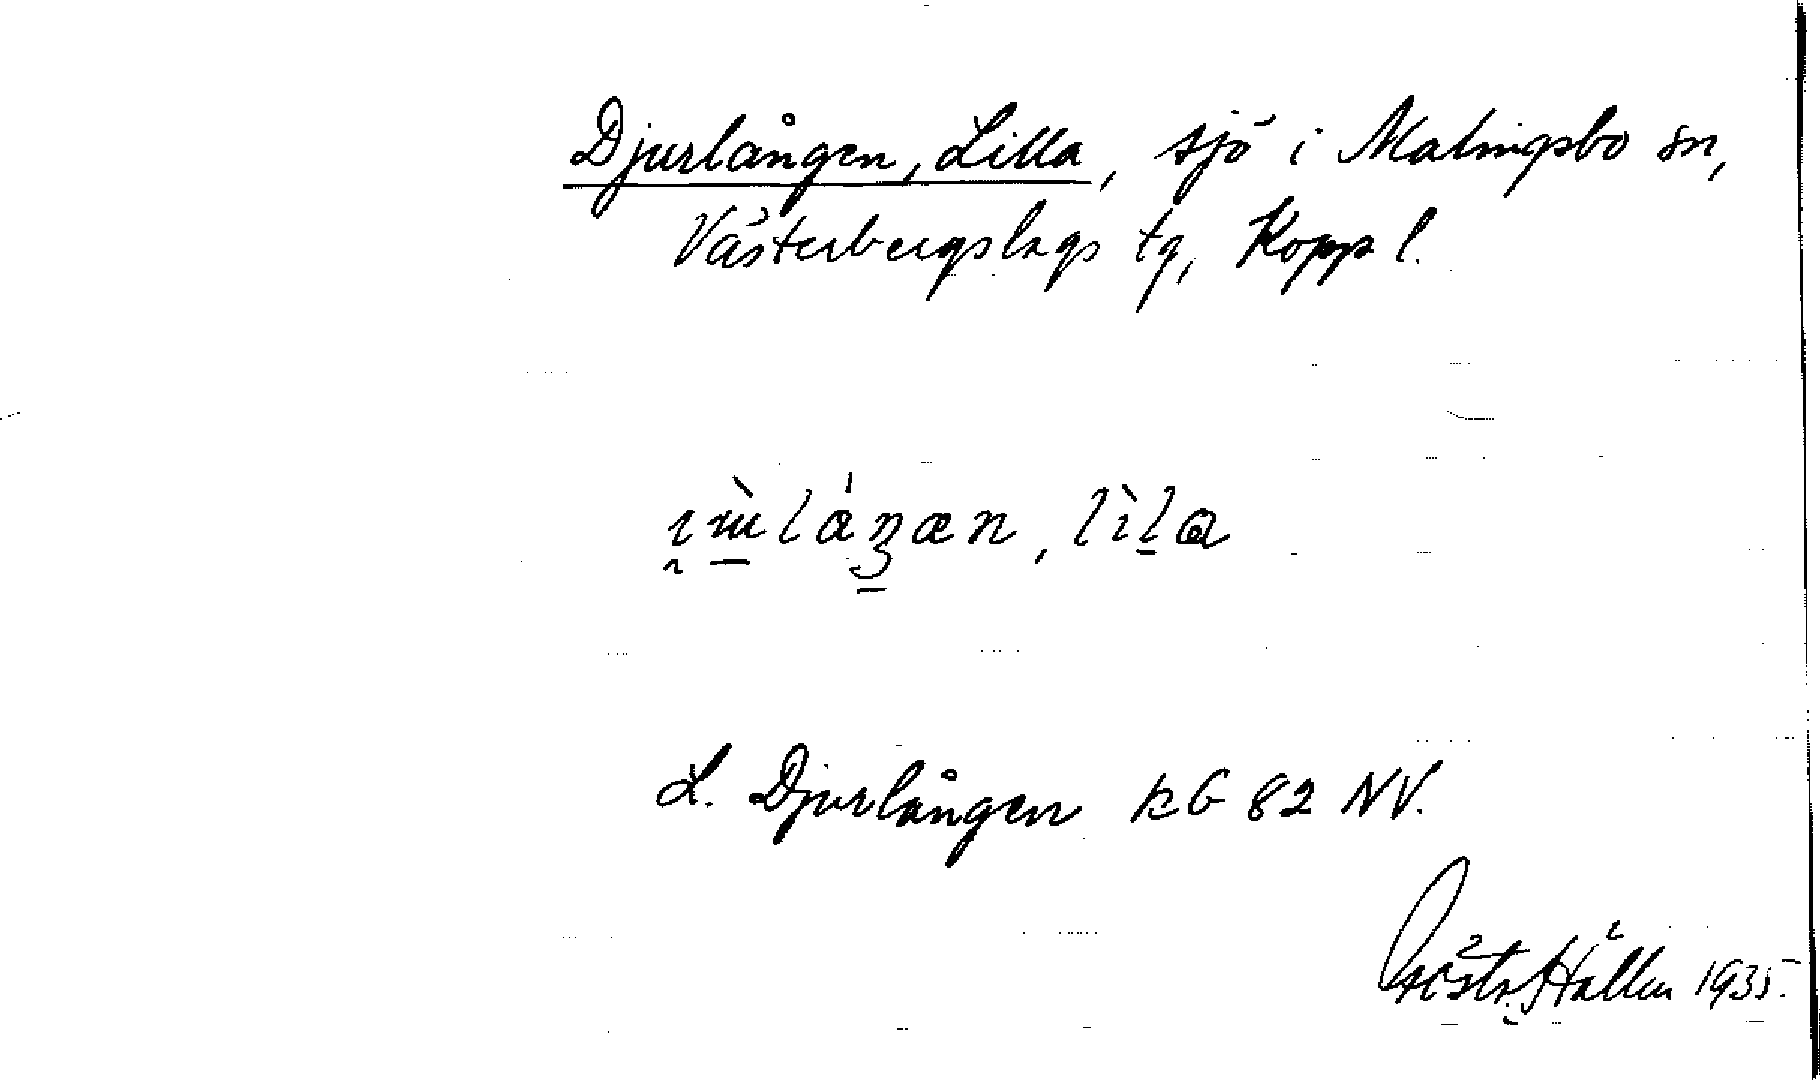 Djurlången, Lilla, sjö i Malingsbo sn,
Västerbergslags tg, Kopp l.
lìla
L. Djurlången kG 82 NV.
Hållen 1935.